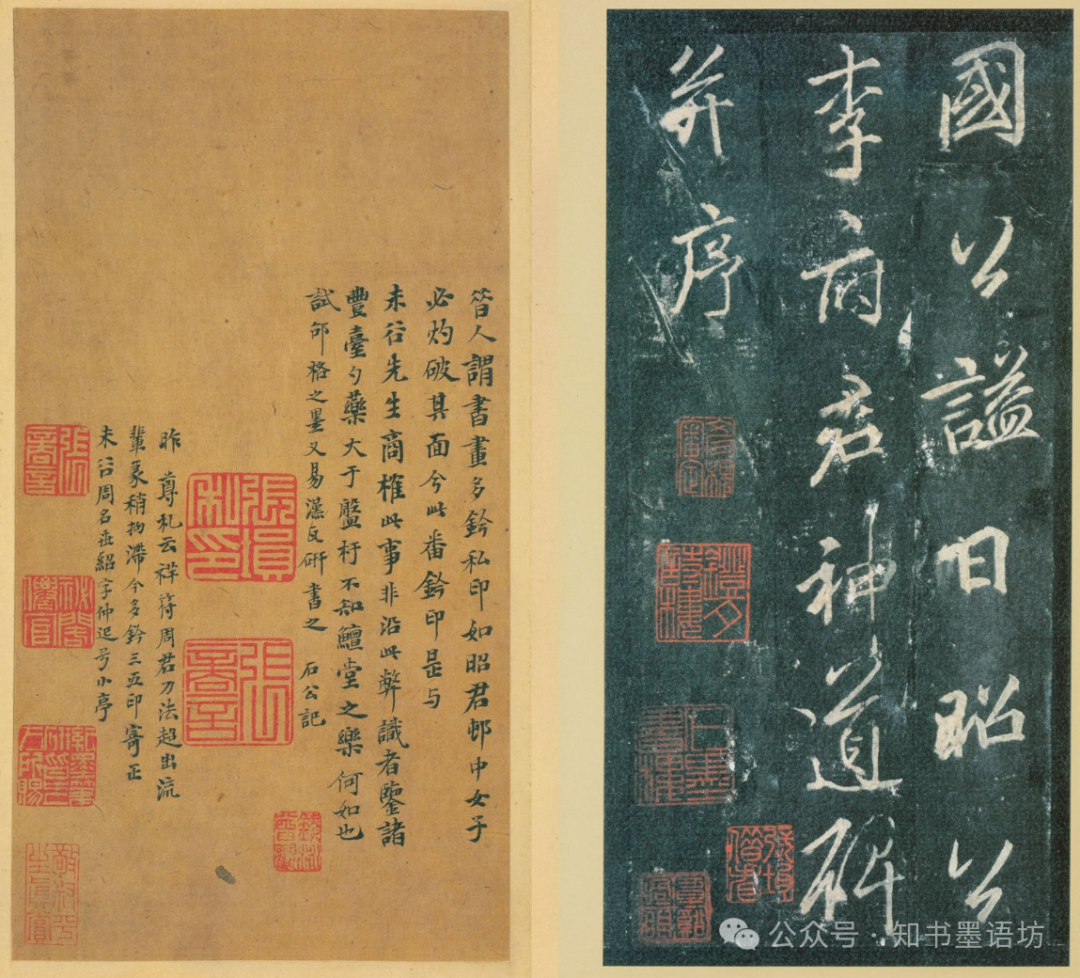 國公謚曰昭公
李府君神道碑
并序
昔人謂書畫多鈐私印如昭君邨中女子
必灼破其面今此番鈐印是与
未谷先生商榷此事非沿此弊識者鑒諸
豐臺勺藥大于盤杅不知鱣堂之樂何如也
試邰格之墨又易漢瓦研書之 石公記
昨尊札云祥符周君刀法超出流
輩篆稍拘滯今多鈐三五印寄正
未谷周名
紹字仲迟号小亭
張塤私印
公众号·知书墨语坊